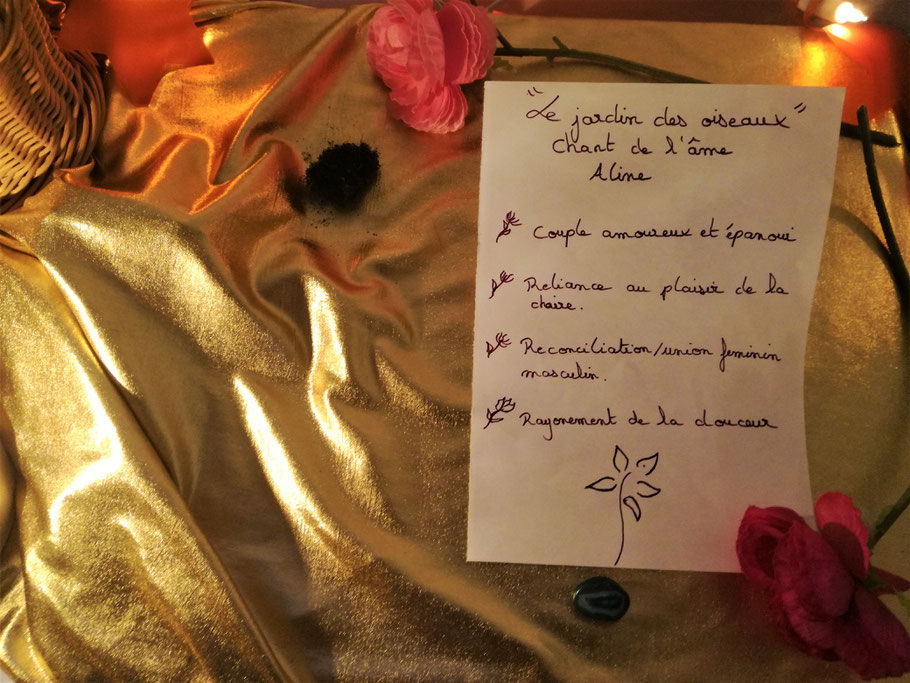 "Le jardin des oiseaux"
Chant de l'âme
Aline
Couple amoureux et épanoui
Reliance au plaisir de la
chaire.
Reconciliation/union feminin
masculin.
Rayonement de la douceur